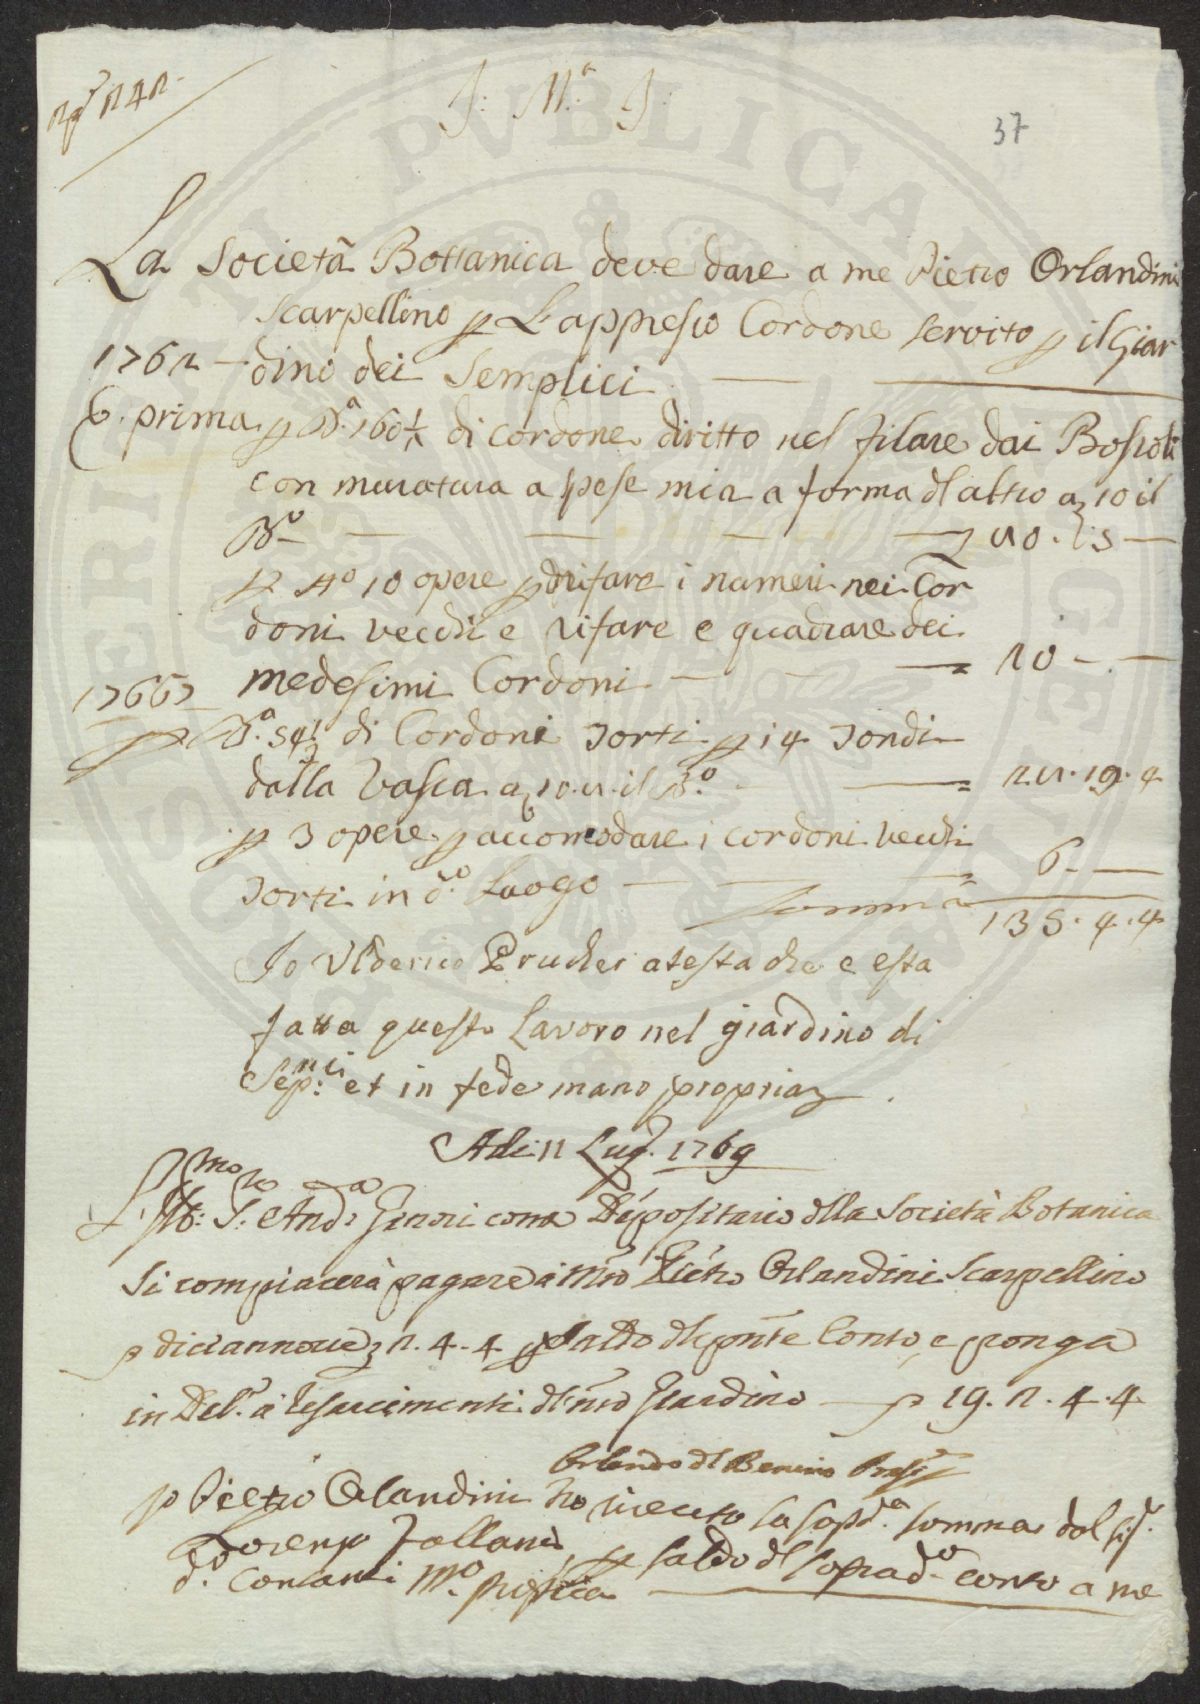 J: M.ª J:
37
La Società Bottanica deve dare a me Pietro Orlandini
Scarpellino p L'appresso Cordone servito p il Giar
1762 - dino dei Semplici
prima p B.ª 160 di cordone diritto nel filare dai Bossoli
con muratura a spese mia a forma dl altro a 10 il
Bº
p Nº 10 opere p rifare i numeri nei Cor
doni vecchi e rifare e quadrare dei
medesimi Cordoni
1767
p B.ª di Cordoni Torti p 14 Tondi
dalla Vasca a il Bº
p 3 opere p accomodare i cordoni vecchi 6 -
Torti in dº Luogo Somma 135. 4. 4
Io Ulderico Prucher atesta che e esta
fatta questo Lavoro nel giardino di
Sep.nci et in fede mano propria
Adi: 11 Lug. 1769
L'Ill:mo S.re And.a Ginori come Depositario dlla Società Botanica
Si compiacerà pagare a Mro Pietro Orlandini Scarpellino
p diciannove 2. 4. 4 p saldo dl pnte Conto, e ponga
in Deb.e a resarcimenti dl nro Giardino p 19. 2. 4. 4
Orlando dl Benino
p Pietro Orlandini ho riceuto la sopd.ª somma dal Sig.r
Lorenzo p saldo dl soprad.º conto a me
d.º Contanti Mº